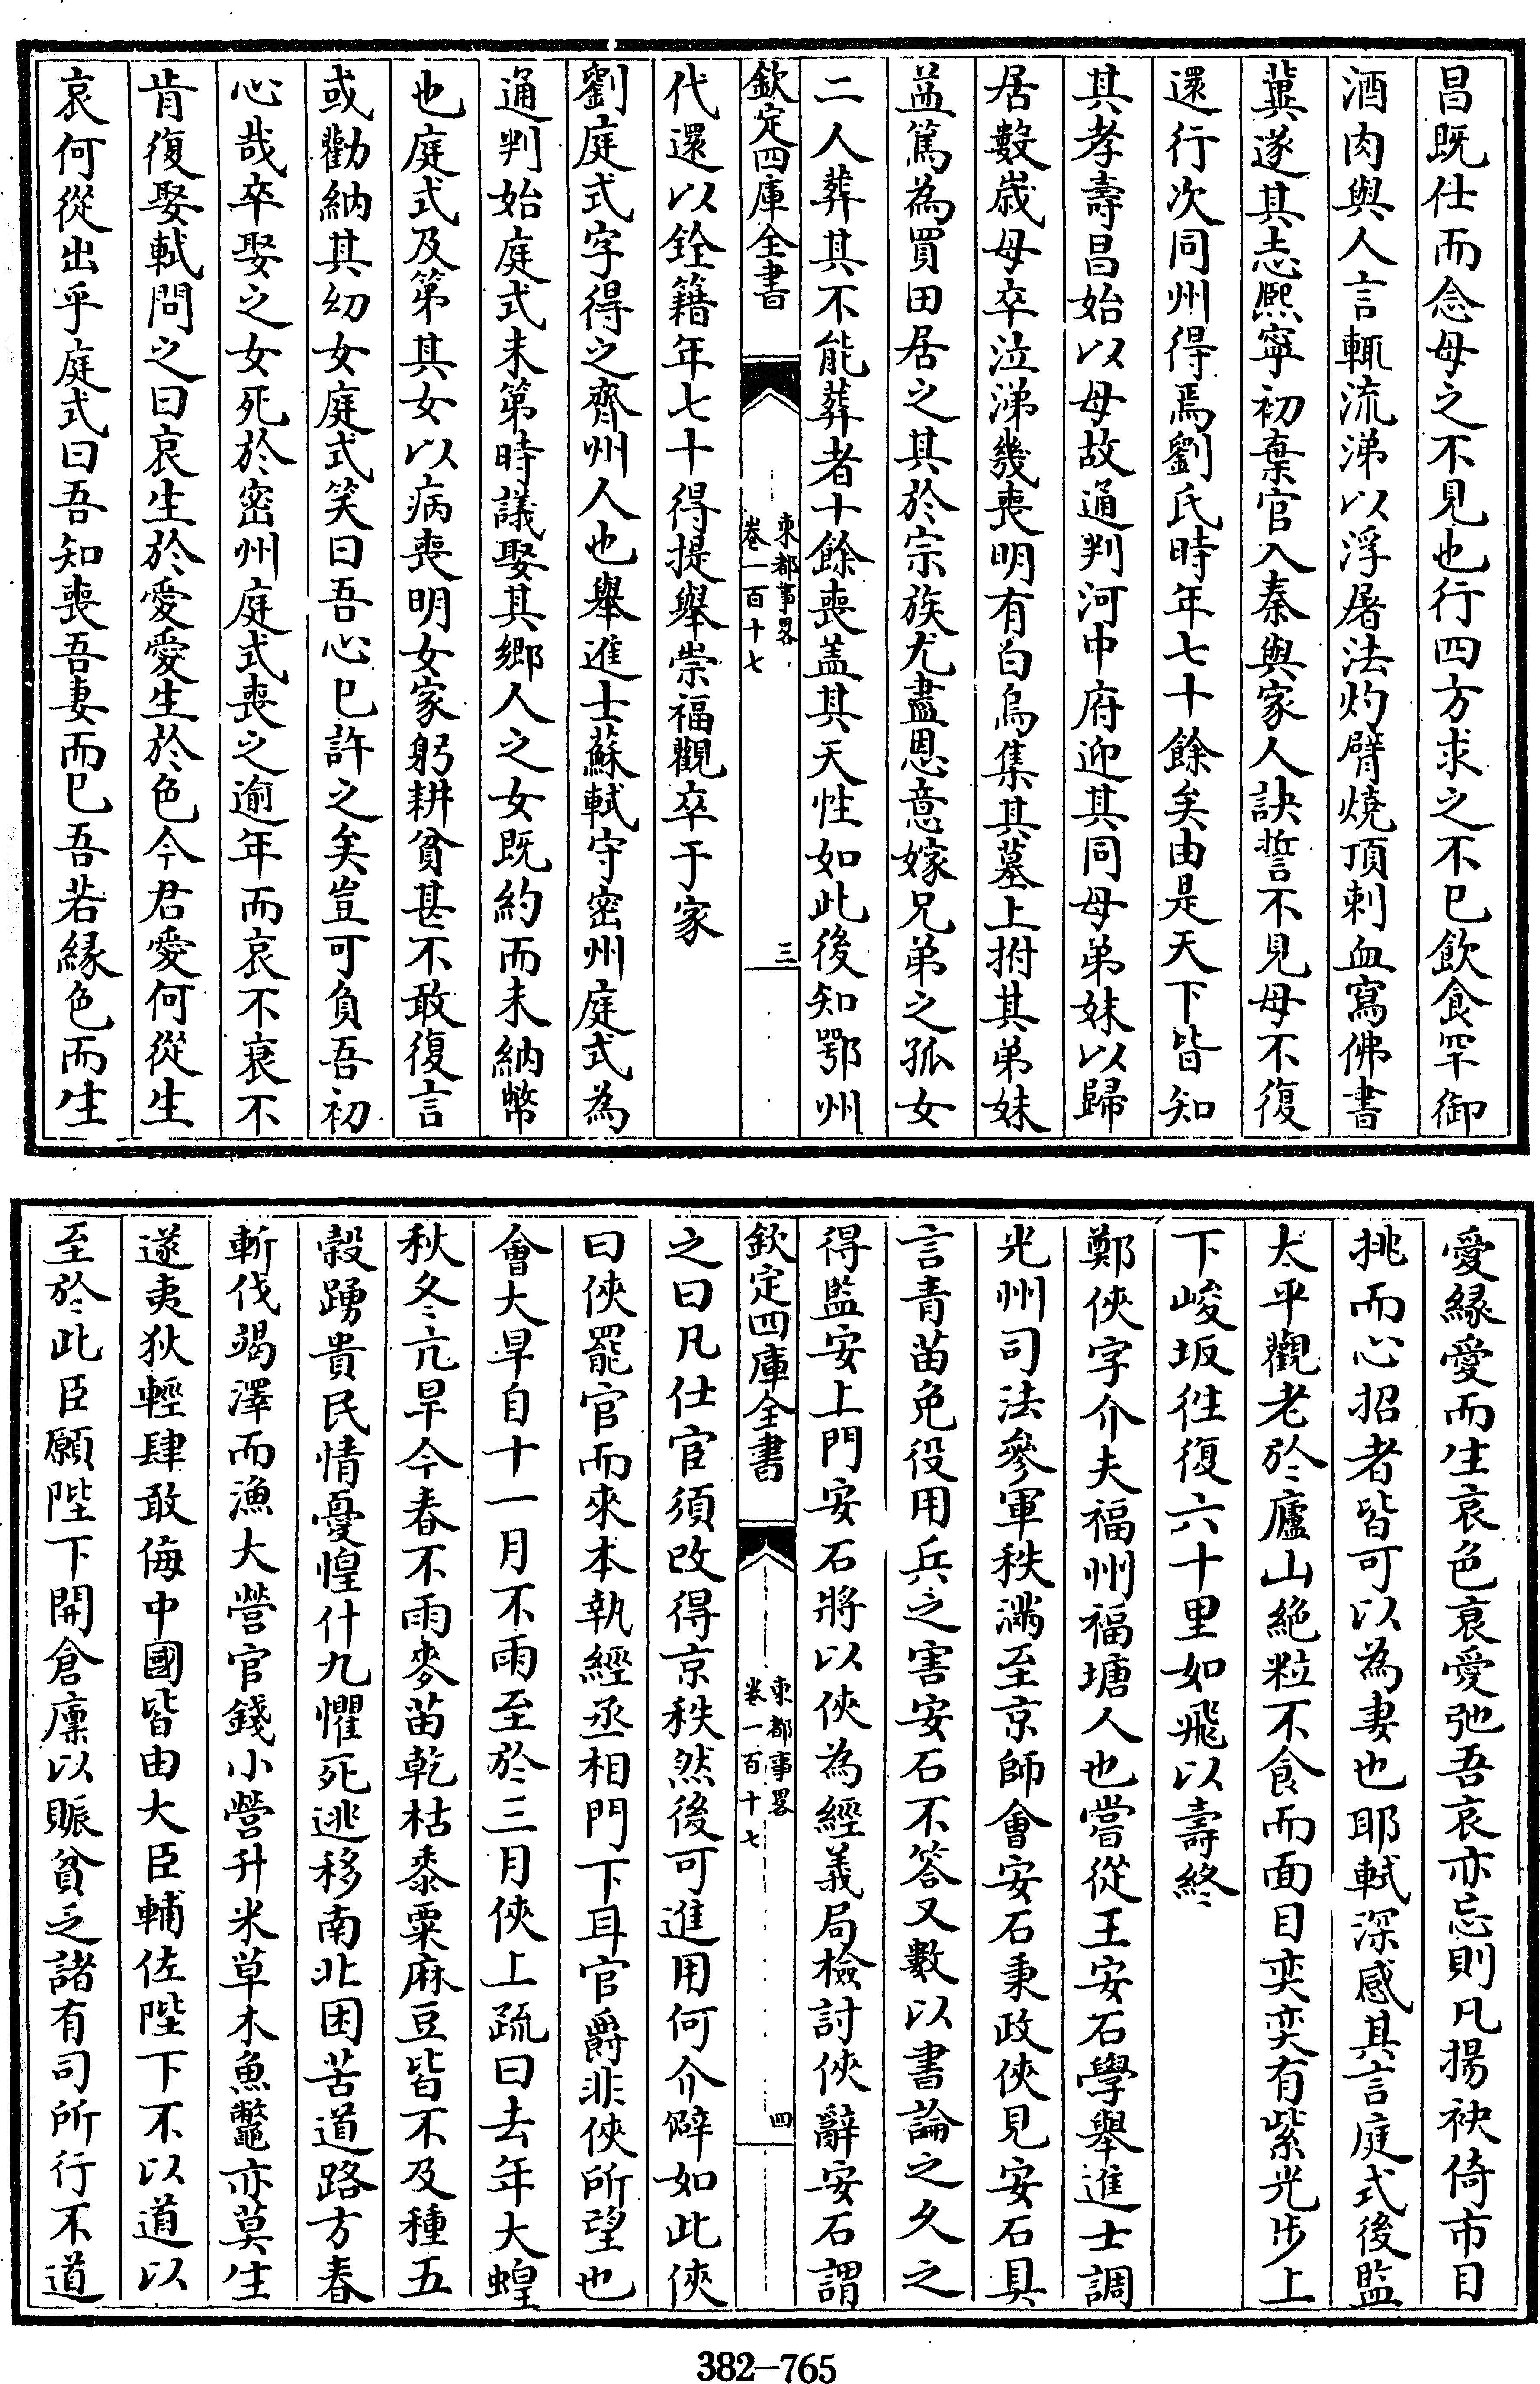 昌既仕而念母之不見也行四方求之不已飲食罕御
酒肉與人言輒流涕以浮屠法灼臂燒頂刺血寫佛書
冀遂其志熙寧初棄官入秦與家人訣誓不見母不復
還行次同州得焉劉氏時年七十餘矣由是天下皆知
其孝壽昌始以母故通判河中府迎其同母弟妹以歸
居數歲母卒泣涕幾喪明有白烏集其墓上拊其弟妹
益篤為買田居之其於宗族尤盡恩意嫁兄弟之孤女
二人葬其不能葬者十餘喪蓋其天性如此後知鄂州
欽定四庫全書
東都事畧
卷一百十七
三
代還以銓籍年七十得提舉崇福觀卒于家
劉庭式字得之齊州人也舉進士蘇軾守密州庭式為
通判始庭式未第時議娶其鄉人之女既約而未納幣
也庭式及第其女以病喪明女家躬耕貧甚不敢復言
或勸納其幼女庭式笑曰吾心已許之矣豈可負吾初
心哉卒娶之女死於密州庭式喪之逾年而哀不衰不
肯復娶軾問之曰哀生於愛愛生於色今君愛何從生
哀何從出乎庭式曰吾知喪吾妻而已吾若緣色而生
愛緣愛而生哀色衰愛弛吾哀亦忘則凡揚袂倚市目
挑而心招者皆可以為妻也耶軾深感其言庭式後監
太平觀老於廬山絶粒不食而面目奕奕有紫光步上
下峻坂徃復六十里如飛以壽終
鄭俠字介夫福州福塘人也嘗從王安石學舉進士調
光州司法參軍秩滿至京師會安石秉政俠見安石具
言青苗免役用兵之害安石不答又數以書論之久之
得監安上門安石將以俠為經義局檢討俠辭安石謂
欽定四庫全書
東都事畧
卷一百十七
四
之曰凡仕宦須改得京秩然後可進用何介僻如此俠
曰俠罷官而來本執經丞相門下耳官爵非俠所望也
會大旱自十一月不雨至於三月俠上疏曰去年大蝗
秋冬亢旱今春不雨麥苗乾枯黍粟麻豆皆不及種五
穀踴貴民情憂惶什九懼死逃移南北困苦道路方春
斬伐竭澤而漁大營官錢小營升米草木魚鼈亦莫生
遂夷狄輕肆敢侮中國皆由大臣輔佐陛下不以道以
至於此臣願陛下開倉廩以賑貧乏諸有司所行不道
382—765